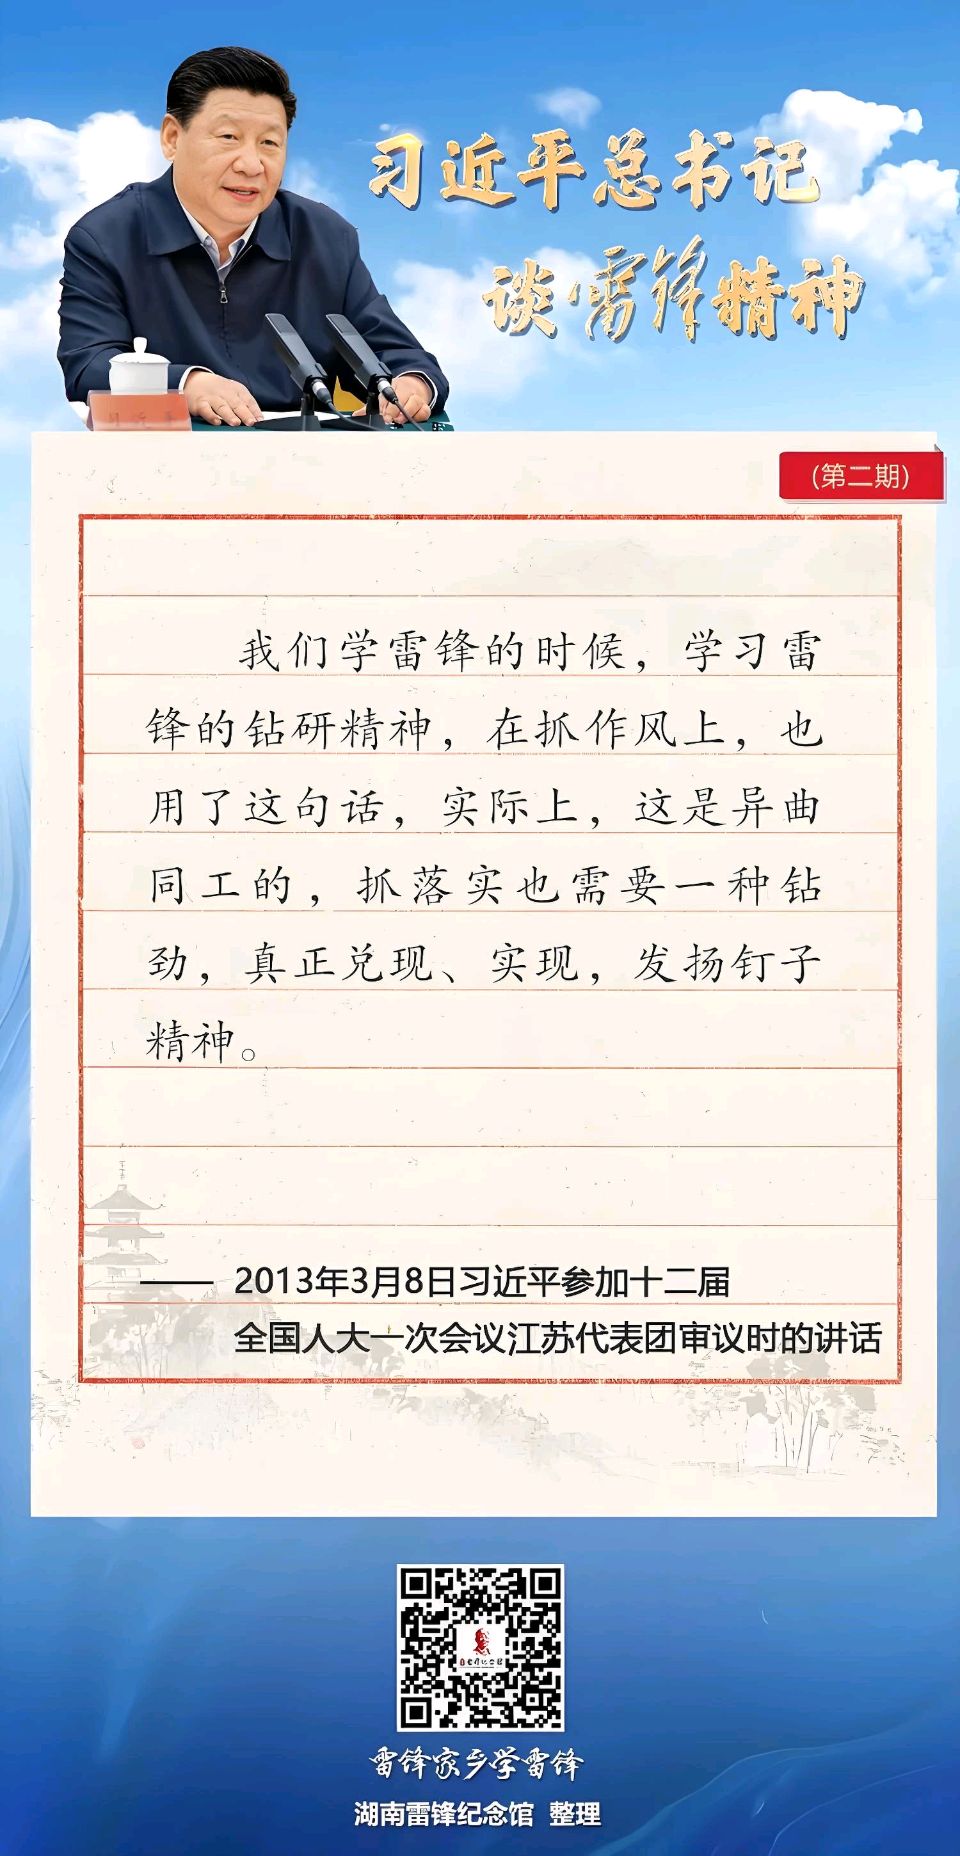 习近平总书记
谈雷锋精神
习近平
(第二期)
我们学雷锋的时候，学习雷
锋的钻研精神，在抓作风上，也
用了这句话，实际上，这是异曲
同工的，抓落实也需要一种钻
劲，真正兑现、实现，发扬钉子
精神。
—— 2013年3月8日习近平参加十二届
全国人大一次会议江苏代表团审议时的讲话
雷锋家乡学雷锋
湖南雷锋纪念馆 整理